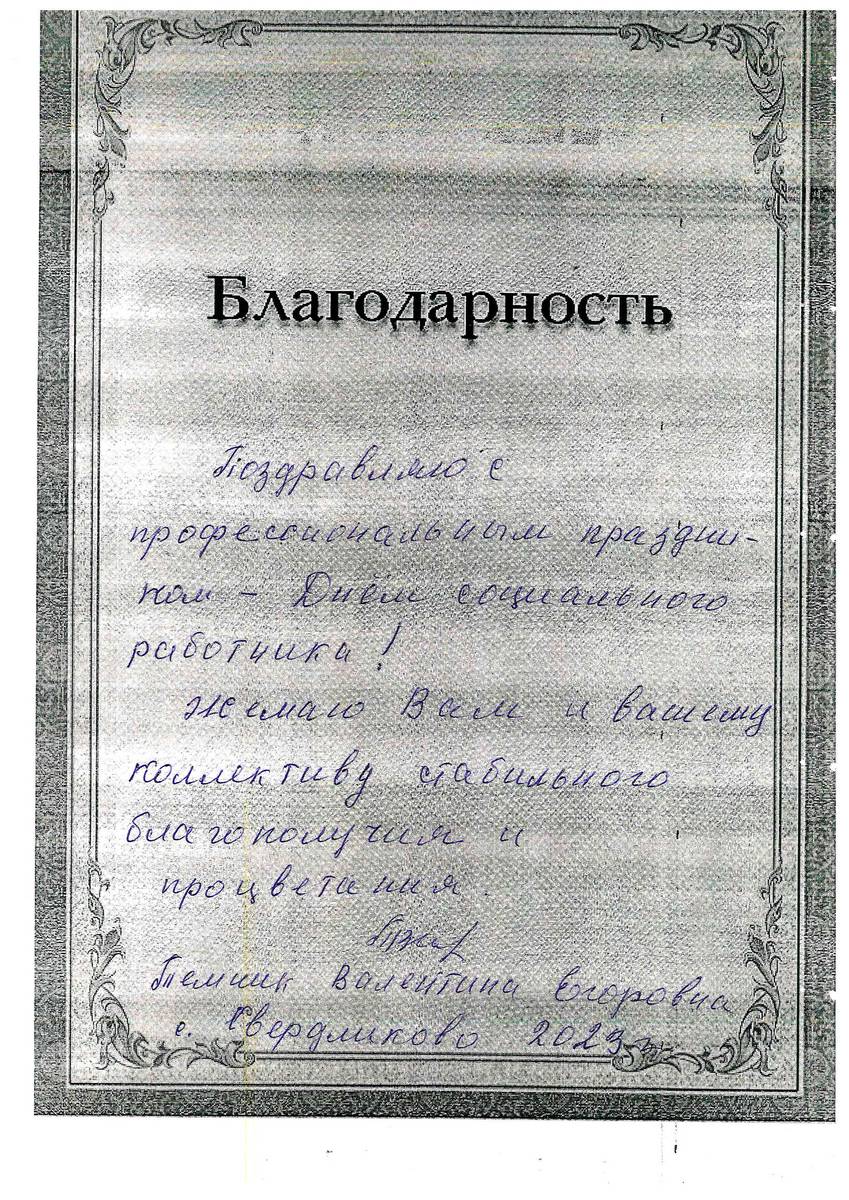 Благодарность
Поздравляю с
профессиональным праздни-
ком - Днём социального
работника!
Желаю Вам и вашему
коллективу стабильного
благополучия и
процветания.
Валентина Егоровна
с. Свердликово 2023г.